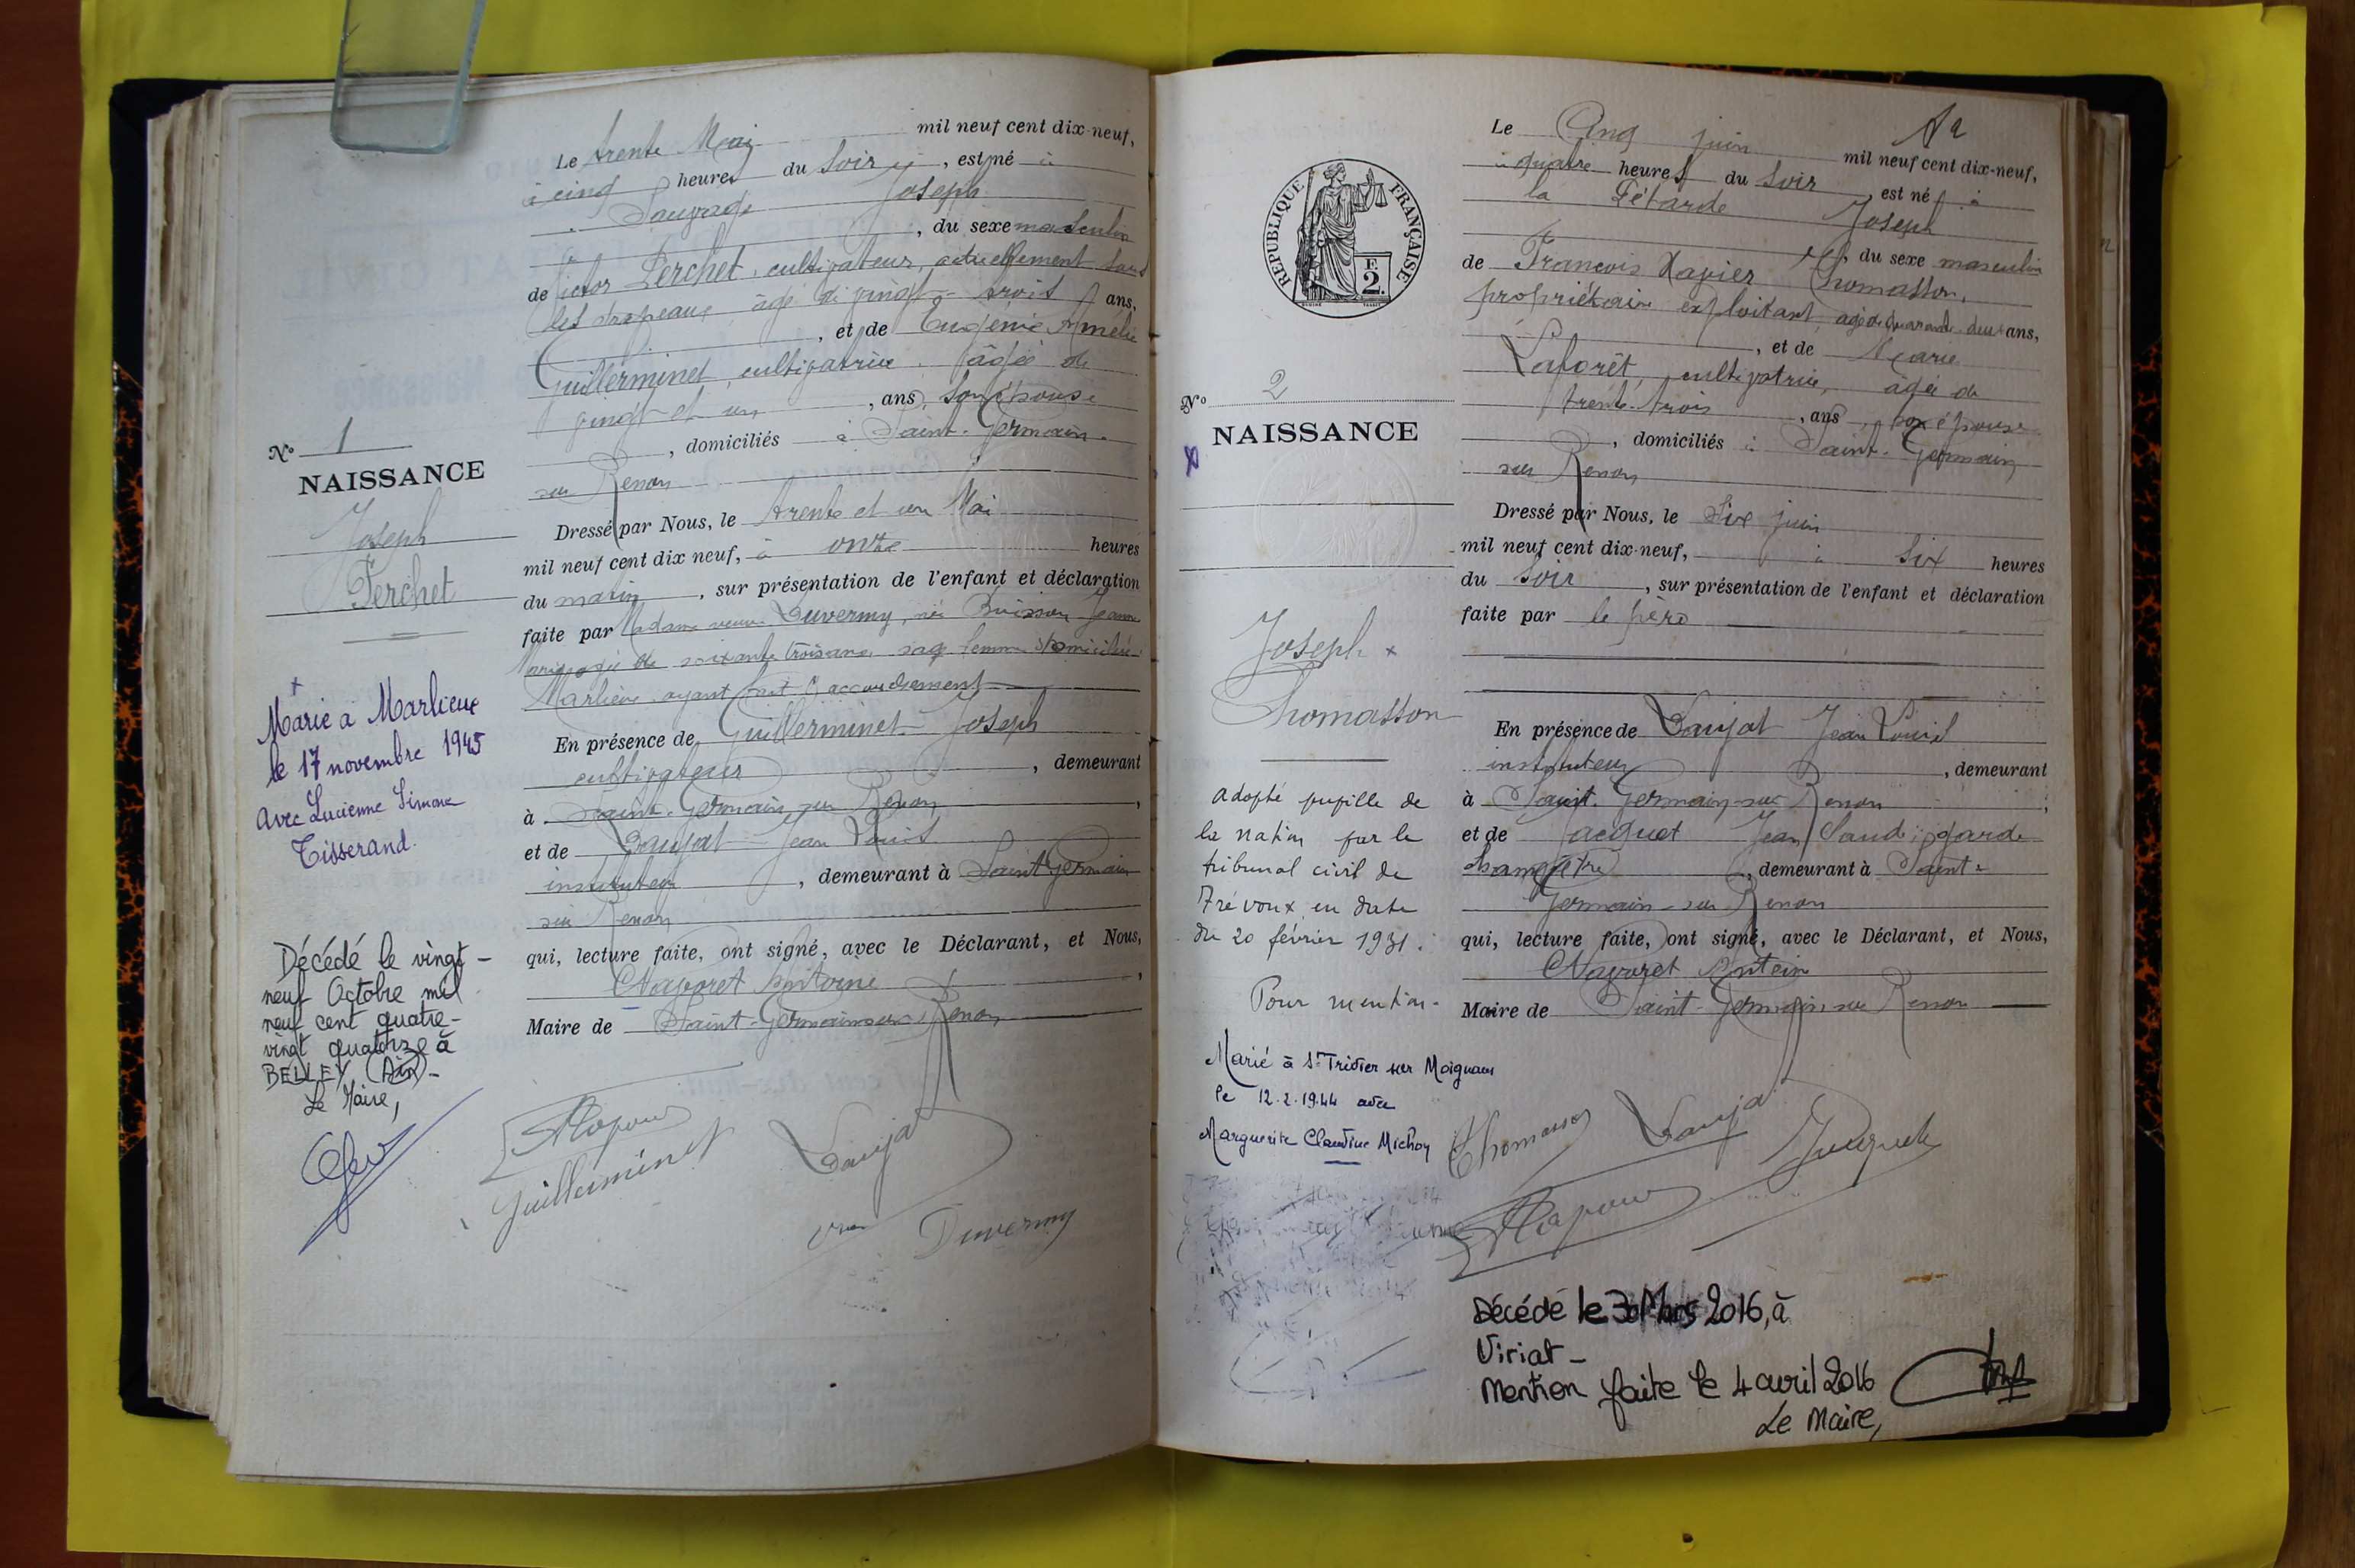 Le trente Mai mil neuf cent dix-neuf,
à cinq heures du soir, est né à
Sauvage Joseph
, du sexe masculin
de Victor Perchet, cultivateur, actuellement sous
les drapeaux, âgé de vingt-trois ans,
, et de Eugénie Amélie
Guillerminet, cultivatrice, âgée de
vingt et un, ans, son épouse
, domiciliés à Saint-Germain
sur Renon
Dressé par Nous, le trente et un Mai
mil neuf cent dix neuf, à onze heures
du matin, sur présentation de l'enfant et déclaration
faite par Madame veuve Duvermy, née Buisson Jeanne
âgée de soixante trois ans sage femme domiciliée
Marlieux ayant fait l'accouchement
En présence de Guillerminet Joseph
cultivateur, demeurant
à Saint-Germain sur Renon,
et de Daujat Jean Louis
instituteur, demeurant à Saint Germain
sur Renon
qui, lecture faite, ont signé, avec le Déclarant, et Nous,
Antoine,
Maire de Saint-Germain sur Renon
Guillerminet Daujat
Duvermy
N° 1
NAISSANCE
Joseph
Perchet
Marié à Marlieux
le 17 novembre 1945
avec Lucienne Simone
Tisserand.
Décédé le vingt-
neuf Octobre mil
neuf cent quatre-
vingt quatorze à
BELLEY (Ain)-
Le Maire,
RÉPUBLIQUE FRANÇAISE
2.
N° 2
NAISSANCE
Joseph
Thomasson
Adopté pupille de
la nation par le
tribunal civil de
Trévoux en date
du 20 février 1931.
Pour mention-
Marié à St Trivier sur Moignans
le 12.2.1944 avec
Marguerite Claudine Michon
Le Cinq juin mil neuf cent dix-neuf,
à quatre heures du soir, est né à
la Pétarde Joseph
, du sexe masculin
de François Xavier Thomasson,
propriétaire exploitant, âgé de quarante deux ans,
, et de Marie
Laforêt, cultivatrice, âgée de
trente-trois, ans, son épouse
, domiciliés à Saint-Germain
sur Renon
Dressé par Nous, le six juin
mil neuf cent dix-neuf, à six heures
du soir, sur présentation de l'enfant et déclaration
faite par le père
En présence de Daujat Jean Louis
instituteur, demeurant
à Saint-Germain-sur Renon,
et de Jacquet Jean Claude, garde
champêtre, demeurant à Saint-
Germain-sur Renon
qui, lecture faite, ont signé, avec le Déclarant, et Nous,
Maire de Saint-Germain sur Renon
Thomasson Daujat
Décédé le 30 Mars 2016, à
Viriat-
Mention faite le 4 avril 2016
Le Maire,